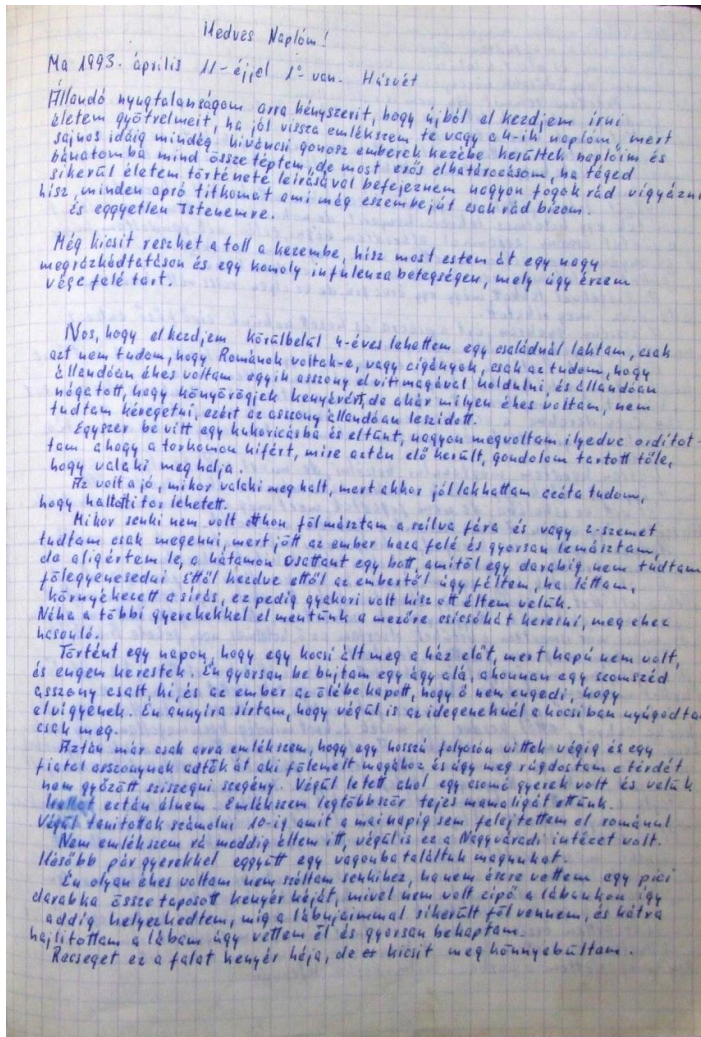 Kedves Naplóm!
Ma 1993. április 11-éjjel 1º van. Húsvét
Állandó nyugtalanságom arra kényszerit, hogy újból el kezdjem írni
életem gyötrelmeit, ha jól vissza emlékszem te vagy a 4-ik naplóm, mert
sajnos idáig mindég kiváncsi gonosz emberek kezébe kerültek naplóim és
bánatomba mind össze téptem, de most erős elhatározásom, ha téged
sikerül életem története leírásával befejeznem nagyon fogok rád vigyázni
hisz, minden apró titkomat ami még eszembejút csak rád bízom.
és eggyetlen Istenemre.
Még kicsit reszket a toll a kezembe, hisz most estem át egy nagy
megrázkódtatáson és egy komoly infulenza betegségen, mely úgy érzem
vége felé tart.
Nos, hogy elkezdjem körülbelül 4-éves lehettem egy családnál laktam, csak
azt nem tudom, hogy Románok voltak-e, vagy cigányok, csak az tudom, hogy
állandóan éhes voltam egyik asszony el vitt magával koldulni, és állandóan
nógatott, hogy könyörögjek kenyérért, de akár milyen éhes voltam, nem
tudtam kéregetni, ezért az asszony állandóan leszidott.
Egyszer be vitt egy kukoricásba és eltünt, nagyon megvoltam ilyedve ordítot-
tam ahogy a torkomon kifért, mire aztén elő került, gondolom tartott tőle,
hogy valaki meg halja.
Az volt a jó, mikor valaki meg halt, mert akkor jól lakhattam azóta tudom,
hogy halotti tor lehetett.
Mikor senki nem volt otthon föl másztam a szilva fára és vagy 2-szemet
tudtam csak megenni, mert jött az ember haza felé és gyorsan lemásztam,
de alig értem le, a hátamon csattant egy bott, amitől egy darabig nem tudtam
fölegyenesedni Ettől kezdve ettől az embertől úgy féltem, ha láttam,
környékezett a sírás, ez pedig gyakori volt hisz ott éltem velük.
Néha a többi gyerekekkel el mentünk a mezőre csicsókát keresni, meg ehez
hasonló.
Történt egy napon, hogy egy kocsi ált meg a ház előt, mert kapú nem volt,
és engem kerestek. Én gyorsan be bujtam egy ágy alá, ahonnan egy szomszéd
asszony csalt, ki, és az ember az ölébe kapott, hogy ő nem engedi, hogy
elvigyenek. Én annyira sírtam, hogy végül is az idegeneknél a kocsiban nyúgodtam
csak meg.
Aztán már csak arra emlékszem, hogy egy hosszú folyosón vittek végig és egy
fiatal asszonynak adtűk át aki fölemelt magához és úgy meg rúgdostam a térdét
nem győzött sziszegni szegény. Végül letett ahol egy csomó gyerek volt és velük
kellet eztán élnem. Emlékszem legtöbbször tejes mamaligát ettünk.
Végül tanítottak számolni 10-ig amit a mai napig sem felejtettem el románul
Nem emlékszem rá meddig éltem itt, végül is ez a Nagyváradi intézet volt.
Később pár gyerekkel eggyütt egy vagonba találtuk magunkat.
Én olyan éhes voltam nem szóltam senkihez, hanem észre vettem egy pici
darabka össze taposott kenyér héját, mivel nem volt cipő a lábunkon így
addig helyezkedtem, míg a lábujaimmal sikerült föl vennem, és hátra
hajlítottam a lábam úgy vettem él és gyorsan bekaptam.
Recseget ez a falat kenyér héja, de kicsit meg könnyebűltam.